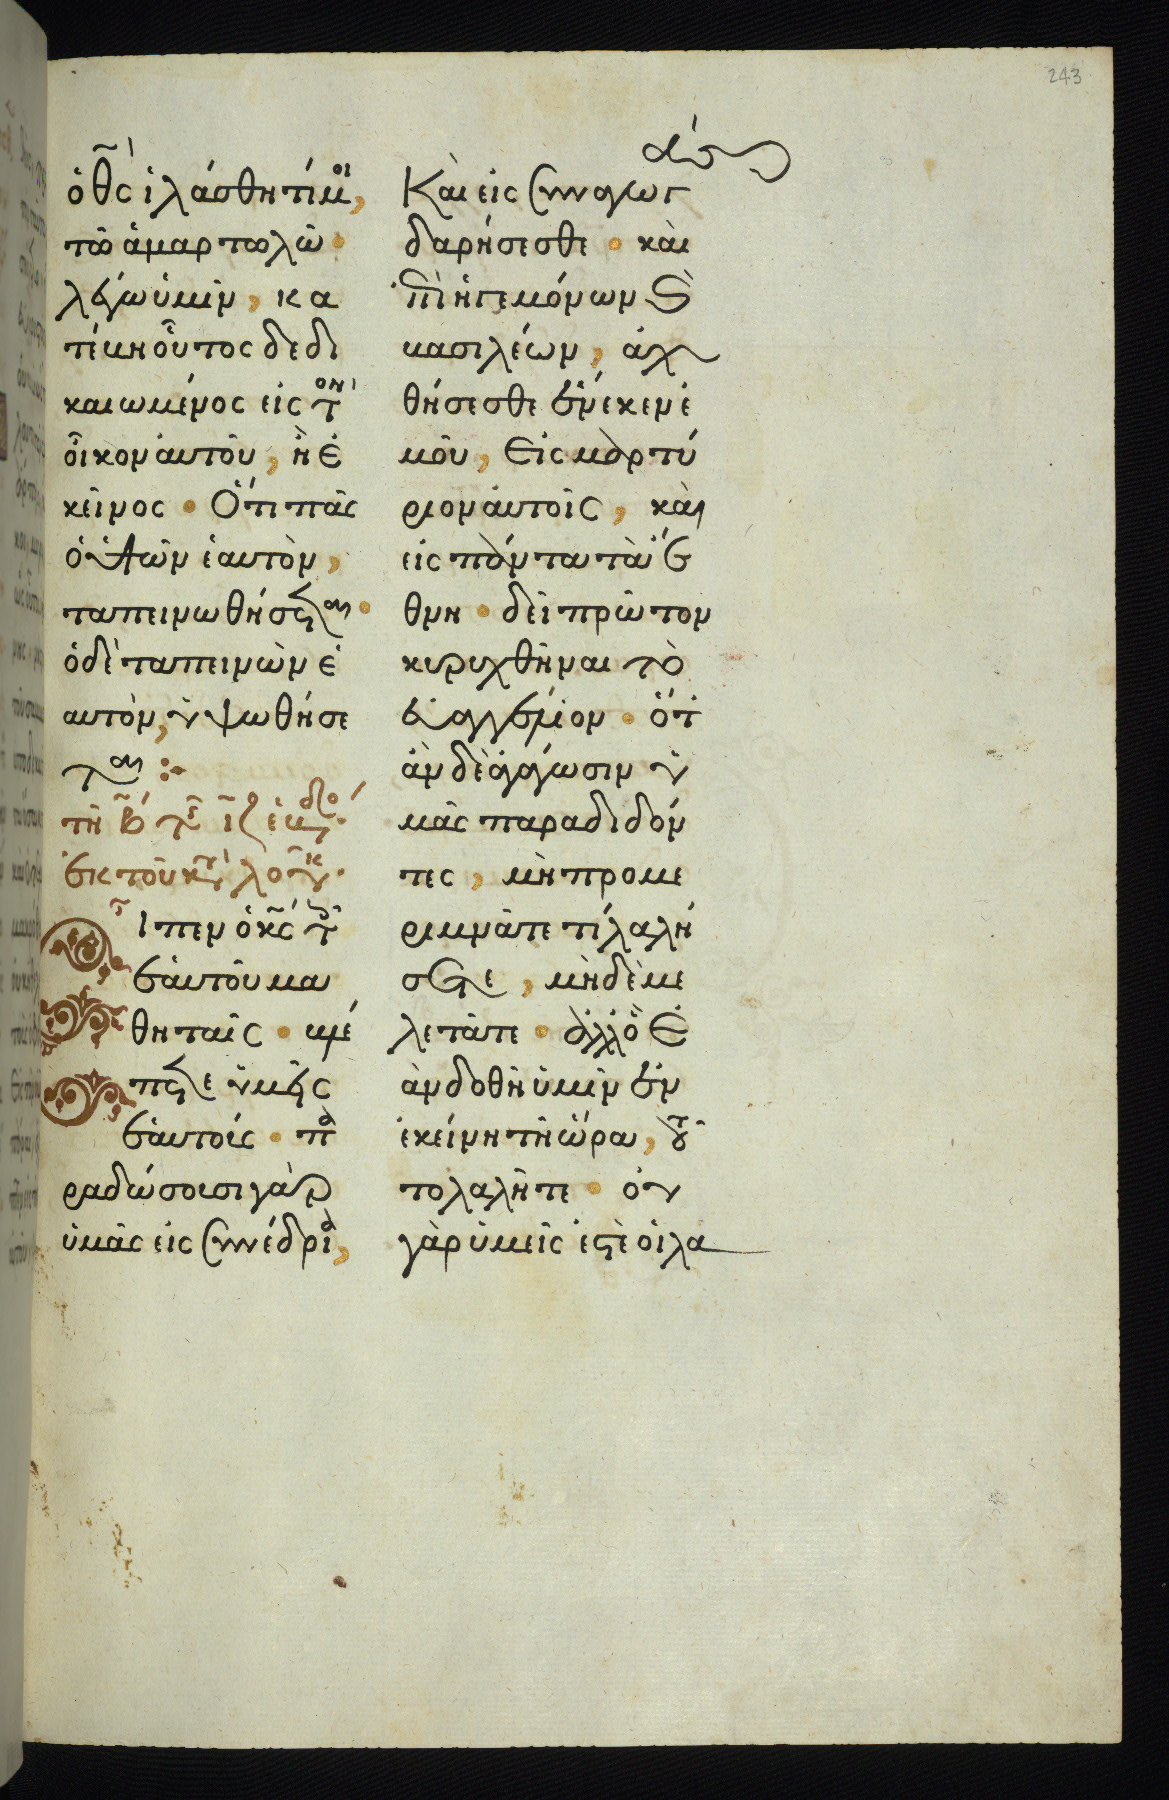 243
ὁ θς ἱλάσθητί μοι,
τῶ ἁμαρτωλῶ·
λέγω ὑμῖν, κα
τέβη οὗτος δεδι
καιωμένος εἰς τὸν
οἶκον αὐτοῦ, ἢ ἐ
κεῖνος· Ὅτι πᾶς
ὁ ὑψῶν ἑαυτὸν,
ταπεινωθήσεται·
ὁ δὲ ταπεινῶν ἑ
αυτὸν, ὑψωθήσε
ται :·
τῆ β τῆς ιζ ἑβδο·
ἐκ τοῦ κτ λουκ·
Εἶπεν ὁ κς τοῖς
ἑαυτοῦ μα
θηταῖς· βλέ
πετε ὑμεῖς
ἑαυτοίς· πα
ραδώσουσι γὰρ
ὑμᾶς εἰς συνέδρια,
Καὶ εἰς συναγωγὰς
δαρήσεσθε· καὶ
ἐπὶ ἡγεμόνων καὶ
βασιλέων, ἀχ
θήσεσθε ἕνεκεν ἐ
μοῦ, Εἰς μαρτύ
ριον αὐτοῖς, καὶ
εἰς πάντα τὰ ἔ
θνη· δεῖ πρῶτον
κηρυχθῆναι τὸ
εὐαγγέλιον· ὅτ
ἂν δὲ ἀγάγωσιν ὑ
μᾶς παραδιδόν
τες, μὴ προμε
ριμνᾶτε τί λαλή
σετε, μὴ δὲ με
λετᾶτε· ἀλλ' ὃ ἐ
ὰν δοθῆ ὑμῖν ἐν
ἐκείνη τῆ ὥρα, τοῦ
το λαλῆτε· οὐ
γὰρ ὑμεῖς ἐστὲ οἱ λα